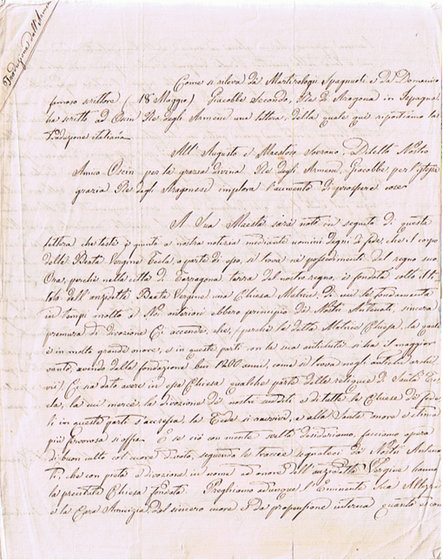 Traduzione dall'Arm
Come si rileva da Martirologii Spagnuoli e da Domenico
famoso scrittore (18 Maggio) Giacobbe Secondo, Re di Aragona in Ispagna
ha scritto ad Oscin Re degli Armeni una lettera, della quale qui riportiamo la
traduzione italiana
All'Augusto e Maestoso Sovrano, Diletto Nostro
Amico Oscin per la grazia divina Re degli Armeni, Giacobbe per l'istessa
grazia Re degli Aragonesi implora l'aumento di prospere cose
A Sua Maestà sarà noto in seguito di questa
lettera che testè è giunto a nostra notizia mediante uomini degni di fede, che il corpo
della Beata Vergine Tecla, o parte di esso, si trova ne' possedimenti del regno suo
Ora, perchè nella città di Tarragona, terra del nostro regno, è fondata sotto il ti
tolo dell'anzidetta Beata Vergine una Chiesa Matrice, di cui le fondamenta
in tempi molto a Noi anteriori ebbero principio da' Nostri Antenati, sincera
premura di divozione Ci accende, che, (perchè la detta Matrice Chiesa, la quale
è in molto grande onore, e in queste parti con la sua antichità si ha il maggior
vanto, avendo della fondazione ben 1200 anni, come si trova negli antichi archi
vii) Ci sia dato avere in essa Chiesa qualche parte della reliquia di Santa Te
cla, la cui mercè la divozione de' nostri sudditi e di tutta la Chiesa de' fede
li in queste parti s'accresca, la Fede si ravvivi, e alla Santa onore e stima
più fervorosa si offra. E se ciò con mente svelta desideriamo, facciamo opera
di buon nulla col cuore divoto, seguendo le traccie segnalate da' Nostri Antena
ti, che con pietà e divozione in nome ed onore dell'anzidetta Vergine hanno
la predetta Chiesa fondata. Preghiamo adunque l'Eminente Sua Altezza
e la Cara Amicizia dal sincero cuore e da propensione interna quanto si con